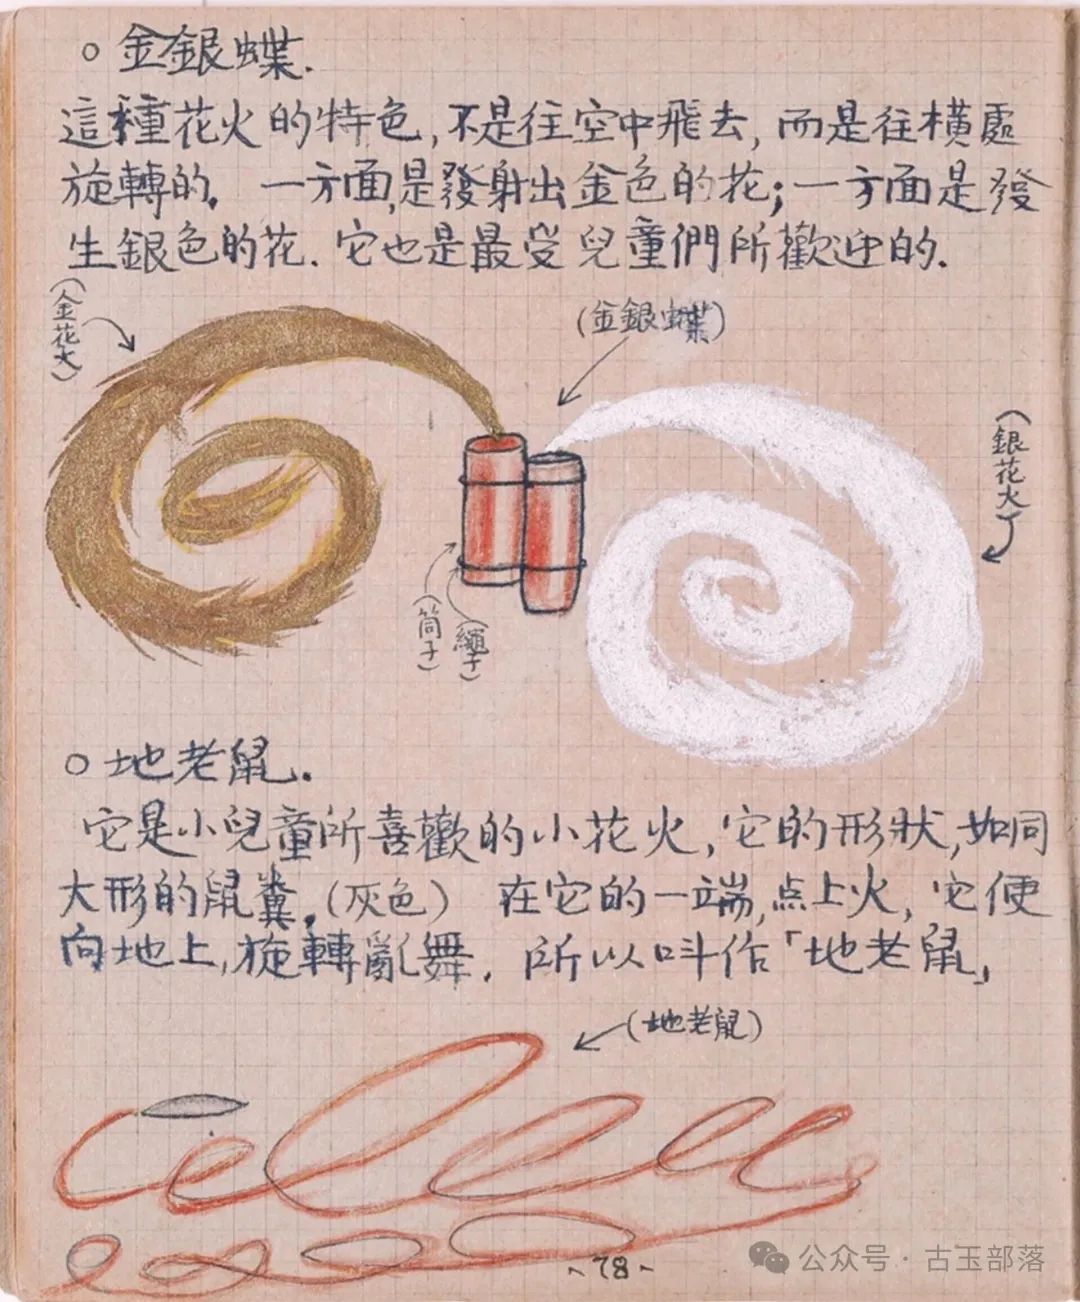 ○ 金銀蝶.
這種花火的特色,不是往空中飛去,而是往橫處
旋轉的。 一方面,是發射出金色的花;一方面是發
生銀色的花.它也是最受兒童們所歡迎的.
(金花火)
(金銀蝶)
(銀花火)
(筒子)
(繩子)
○ 地老鼠.
它是小兒童所喜歡的小花火,它的形狀,如同
大形的鼠糞。(灰色) 在它的一端,点上火, 它便
向地上,旋轉亂舞. 所以叫作「地老鼠」
(地老鼠)
-78-
公众号·古玉部落